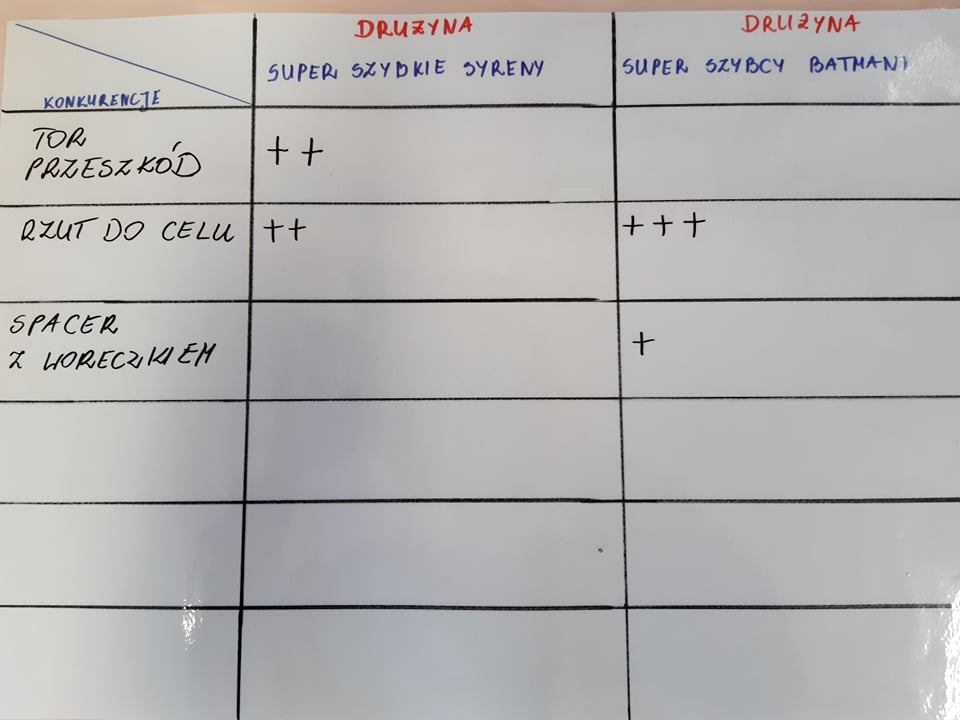 DRUŻYNA
DRUŻYNA
SUPER SZYBKIE SYRENY
SUPER SZYBCY BATMANI
KONKURENCJE
TOR
PRZESZKÓD
++
RZUT DO CELU
++
+++
SPACER
Z WORECZKIEM
+